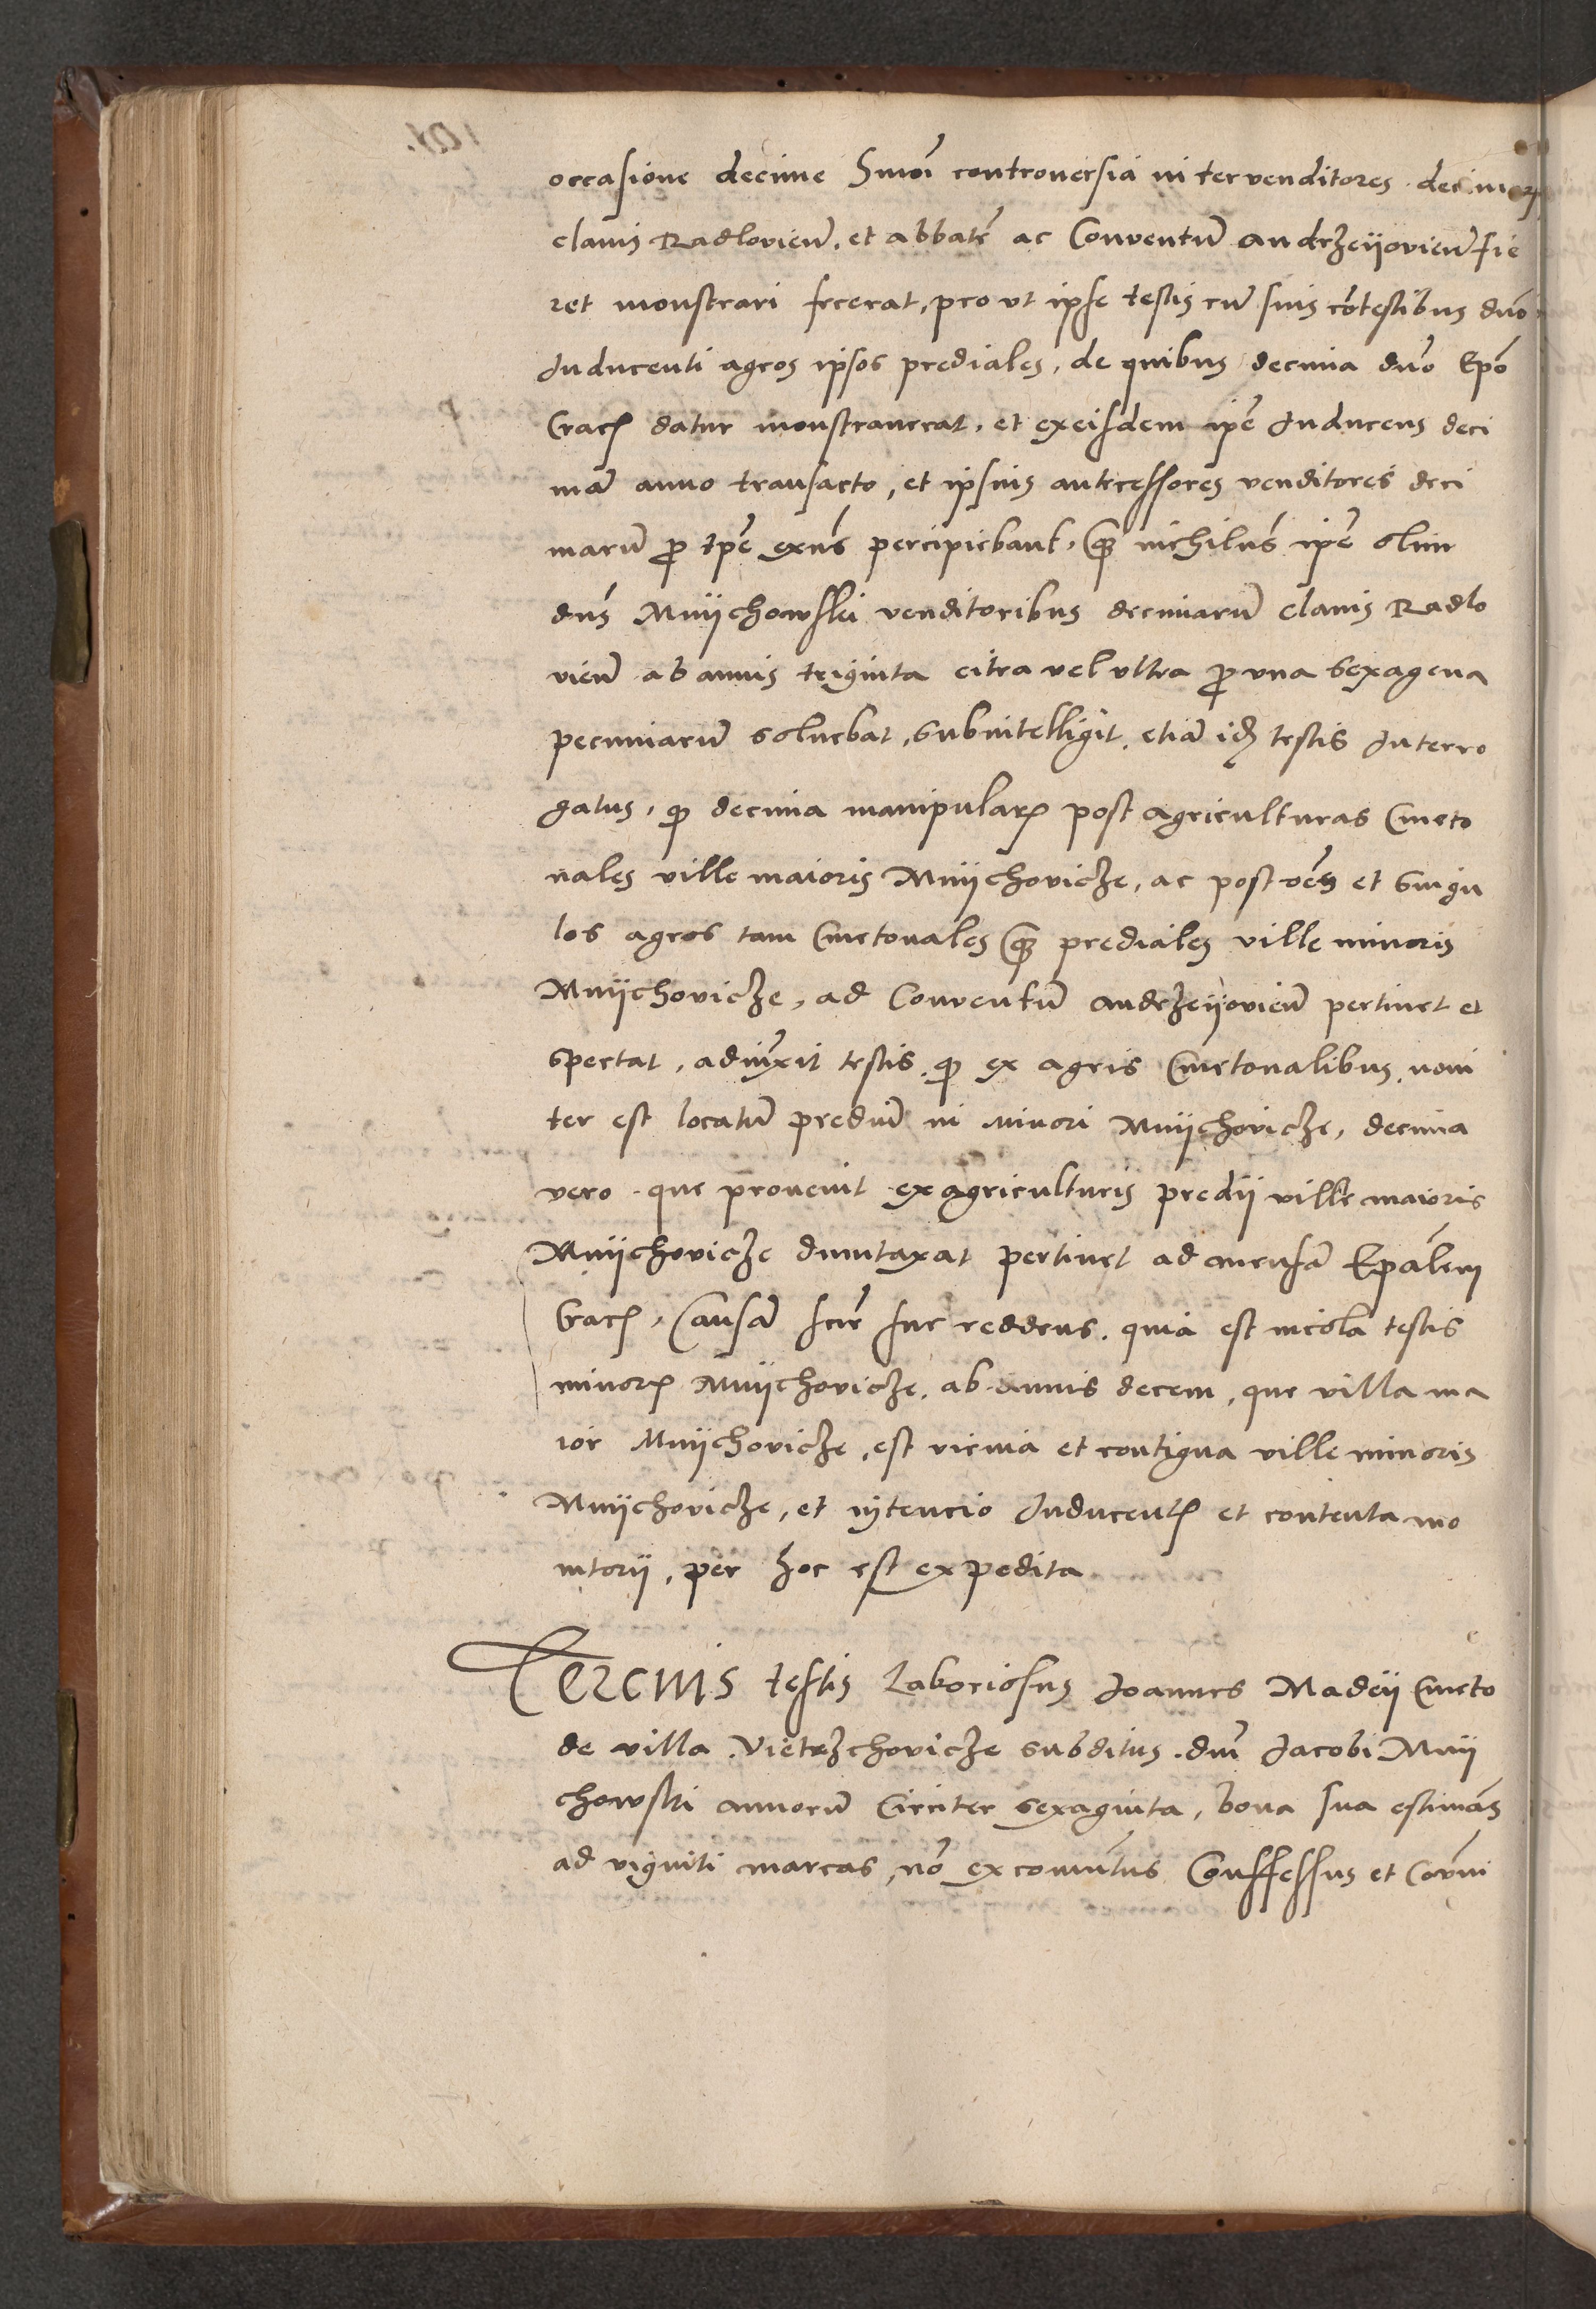 occasione decime Hmoi controuersia inter venditores decimarꝝ
clauis Radlovien̄. et abbatē ac Conventū andrzeyovien̄ fie
ret monstrari fecerat, pro vt ipse testis cū suis cōtestibus dno
Inducenti agros ipsos prediales, de quibus decima dno Epo
Crac̄ datur monstrauerat, et ex eisdem ipē Inducens deci
mā anno transacto, et ipsius antecessores venditores deci
marū ꝓ tpē exn̄s percipiebant, quā nichilus ipē olim
dns Mnychowski venditoribus decimarū clauis Radlo
vien̄ ab annis triginta citra vel vltra ꝓ vna sexagena
pecuniarū soluebat, subintelligit etiā idē testis Interro
gatus, ꝙ decima manipularꝭ post agriculturas Cmeto
nales ville maioris Mnychovicze, ac post oēs et singu
los agros tam Cmetonales quā prediales ville minoris
Mnychovicze, ad Conventū andrzeyovien̄ pertinet et
spectat, adiūxit testis, ꝙ ex agris Cmetonalibus, novi
ter est locatū prediū in minori Mnychovicze, decima
vero que provenit ex agriculturis predii ville maioris
Mnychovicze dumtaxat pertinet ad mensā Epālem
Crac̄, Causā scīe sue reddens, quia est incola testis
minorꝭ Mnychovicze, ab annis decem, que villa ma
ior Mnychovicze, est vicina et contigua ville minoris
Mnychovicze, et intencio Inducentꝭ et contenta mo
nitorii, per hoc est expedita
Tercius testis Laboriosus Joannes Madeii Cmeto
de villa Vietrzchovicze subditus dni Jacobi Mny
chowski annorū Circiter sexaginta, bona sua estimās
ad viginti marcas, nō excomūtus Conffessus et Cōmi